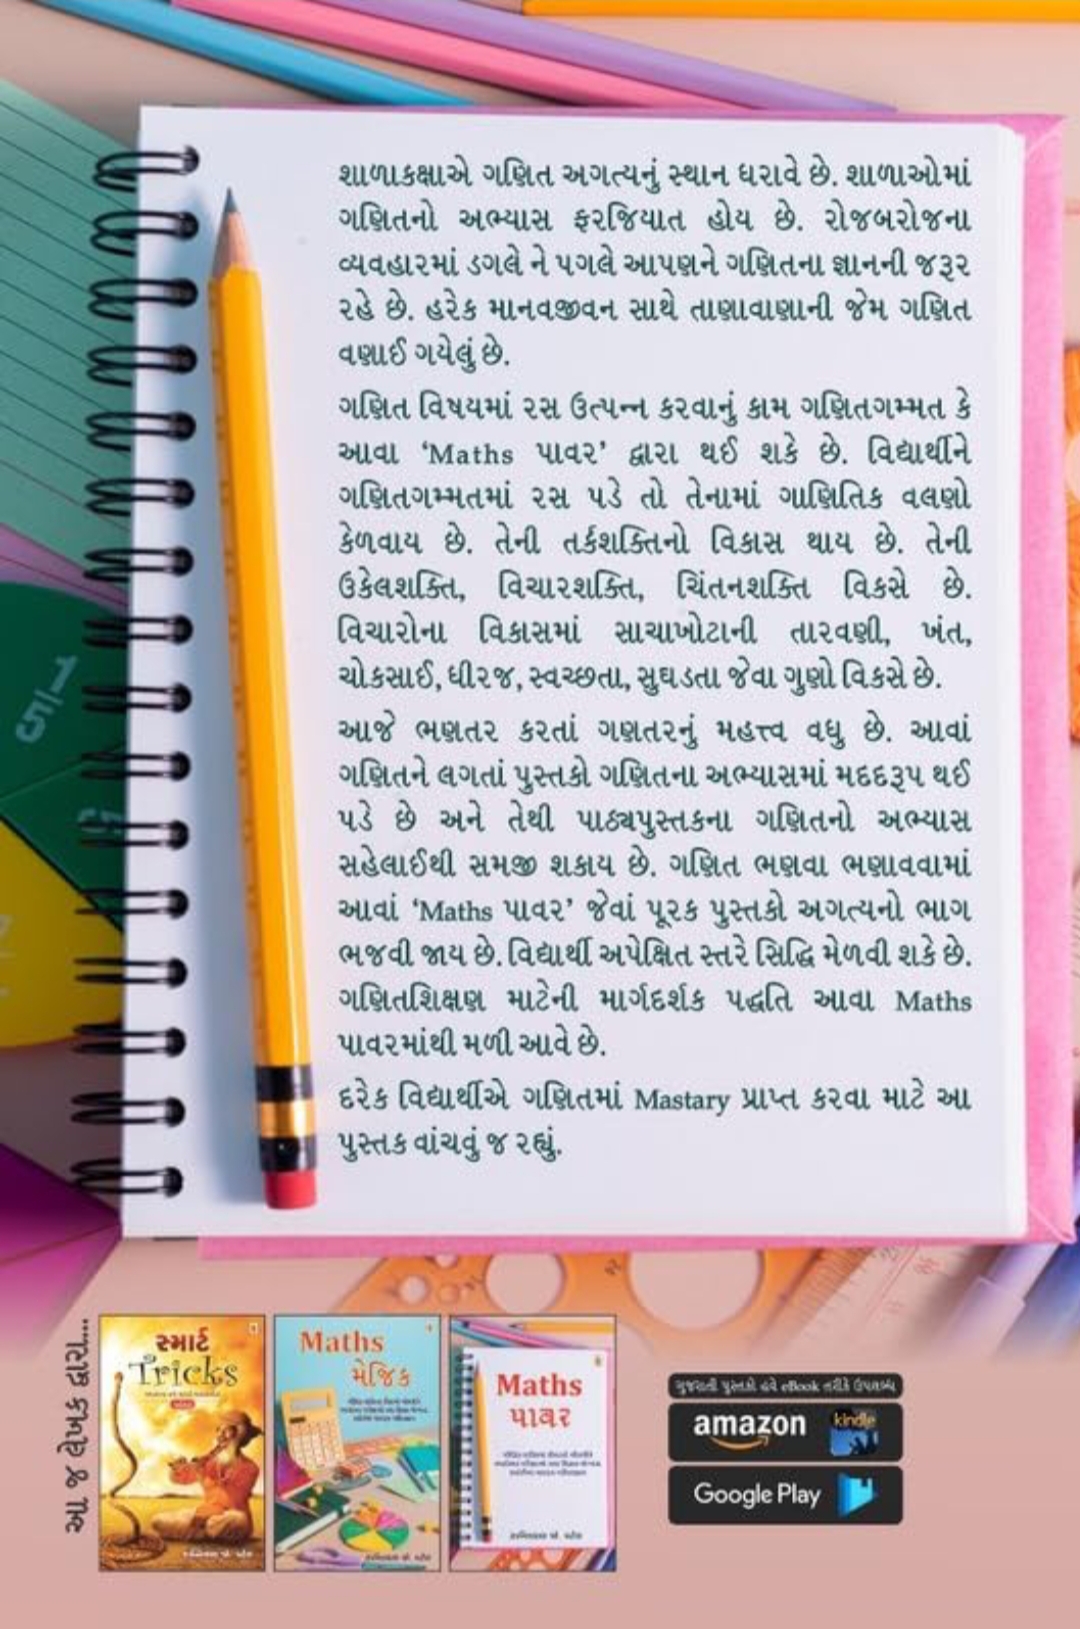 શાળાકક્ષાએ ગણિત અગત્યનું સ્થાન ધરાવે છે. શાળાઓમાં
ગણિતનો અભ્યાસ ફરજિયાત હોય છે. રોજબરોજના
વ્યવહારમાં ડગલે ને પગલે આપણને ગણિતના જ્ઞાનની જરૂર
રહે છે. હરેક માનવજીવન સાથે તાણાવાણાની જેમ ગણિત
વણાઈ ગયેલું છે.
ગણિત વિષયમાં રસ ઉત્પન્ન કરવાનું કામ ગણિતગમ્મત કે
આવા ‘Maths પાવર’ દ્વારા થઈ શકે છે. વિદ્યાર્થીને
ગણિતગમ્મતમાં રસ પડે તો તેનામાં ગાણિતિક વલણો
કેળવાય છે. તેની તર્કશક્તિનો વિકાસ થાય છે. તેની
ઉકેલશક્તિ, વિચારશક્તિ, ચિંતનશક્તિ વિકસે છે.
વિચારોના વિકાસમાં સાચાખોટાની તારવણી, ખંત,
ચોકસાઈ, ધીરજ, સ્વચ્છતા, સુઘડતા જેવા ગુણો વિકસે છે.
આજે ભણતર કરતાં ગણતરનું મહત્ત્વ વધુ છે. આવાં
ગણિતને લગતાં પુસ્તકો ગણિતના અભ્યાસમાં મદદરૂપ થઈ
પડે છે અને તેથી પાઠ્યપુસ્તકના ગણિતનો અભ્યાસ
સહેલાઈથી સમજી શકાય છે. ગણિત ભણવા ભણાવવામાં
આવાં ‘Maths પાવર’ જેવાં પૂરક પુસ્તકો અગત્યનો ભાગ
ભજવી જાય છે. વિદ્યાર્થી અપેક્ષિત સ્તરે સિદ્ધિ મેળવી શકે છે.
ગણિતશિક્ષણ માટેની માર્ગદર્શક પદ્ધતિ આવા Maths
પાવરમાંથી મળી આવે છે.
દરેક વિદ્યાર્થીએ ગણિતમાં Mastary પ્રાપ્ત કરવા માટે આ
પુસ્તક વાંચવું જ રહ્યું.
1/5
આ જ લેખક દ્વારા...
સ્માર્ટ
Tricks
Maths
મેજિક
Maths
પાવર
ગુજરાતી પુસ્તકો હવે eBook તરીકે ઉપલબ્ધ
amazon kindle
Google Play